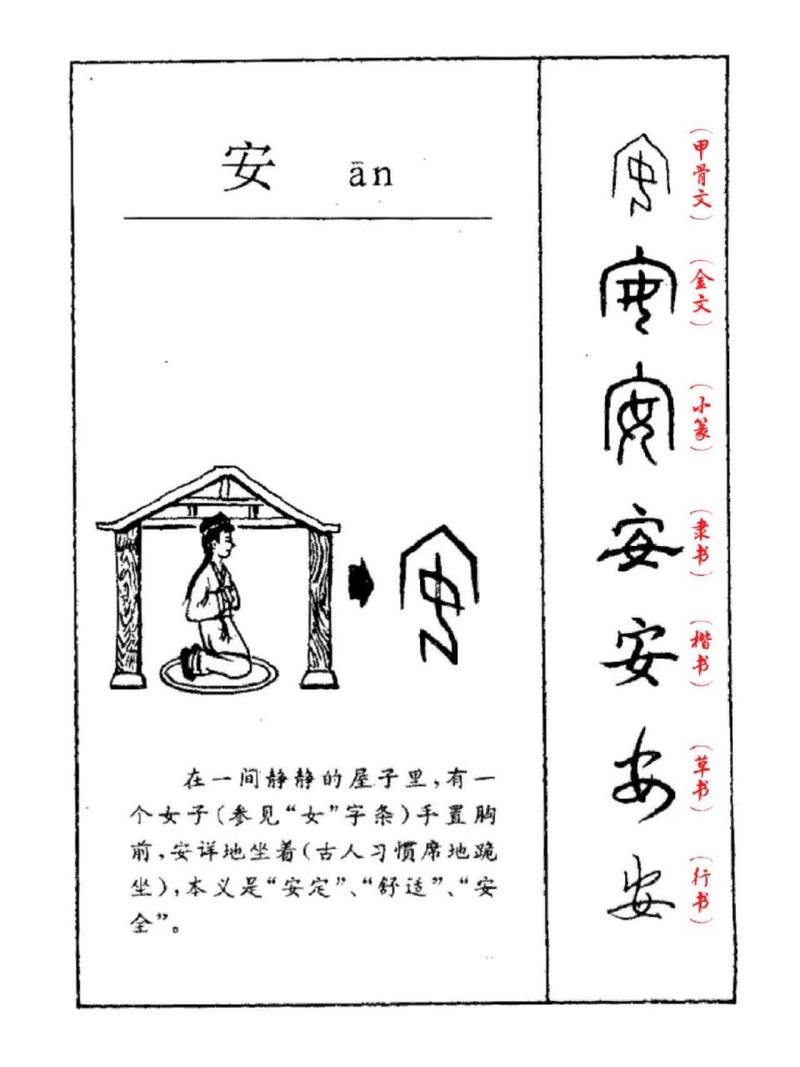 安 ān
在一间静静的屋子里,有一
个女子(参见“女”字条)手置胸
前,安详地坐着(古人习惯席地跪
坐),本义是“安定”、“舒适”、“安
全”。
安
(甲骨文)
安
(金文)
安
(小篆)
安
(隶书)
安
(楷书)
安
(草书)
安
(行书)